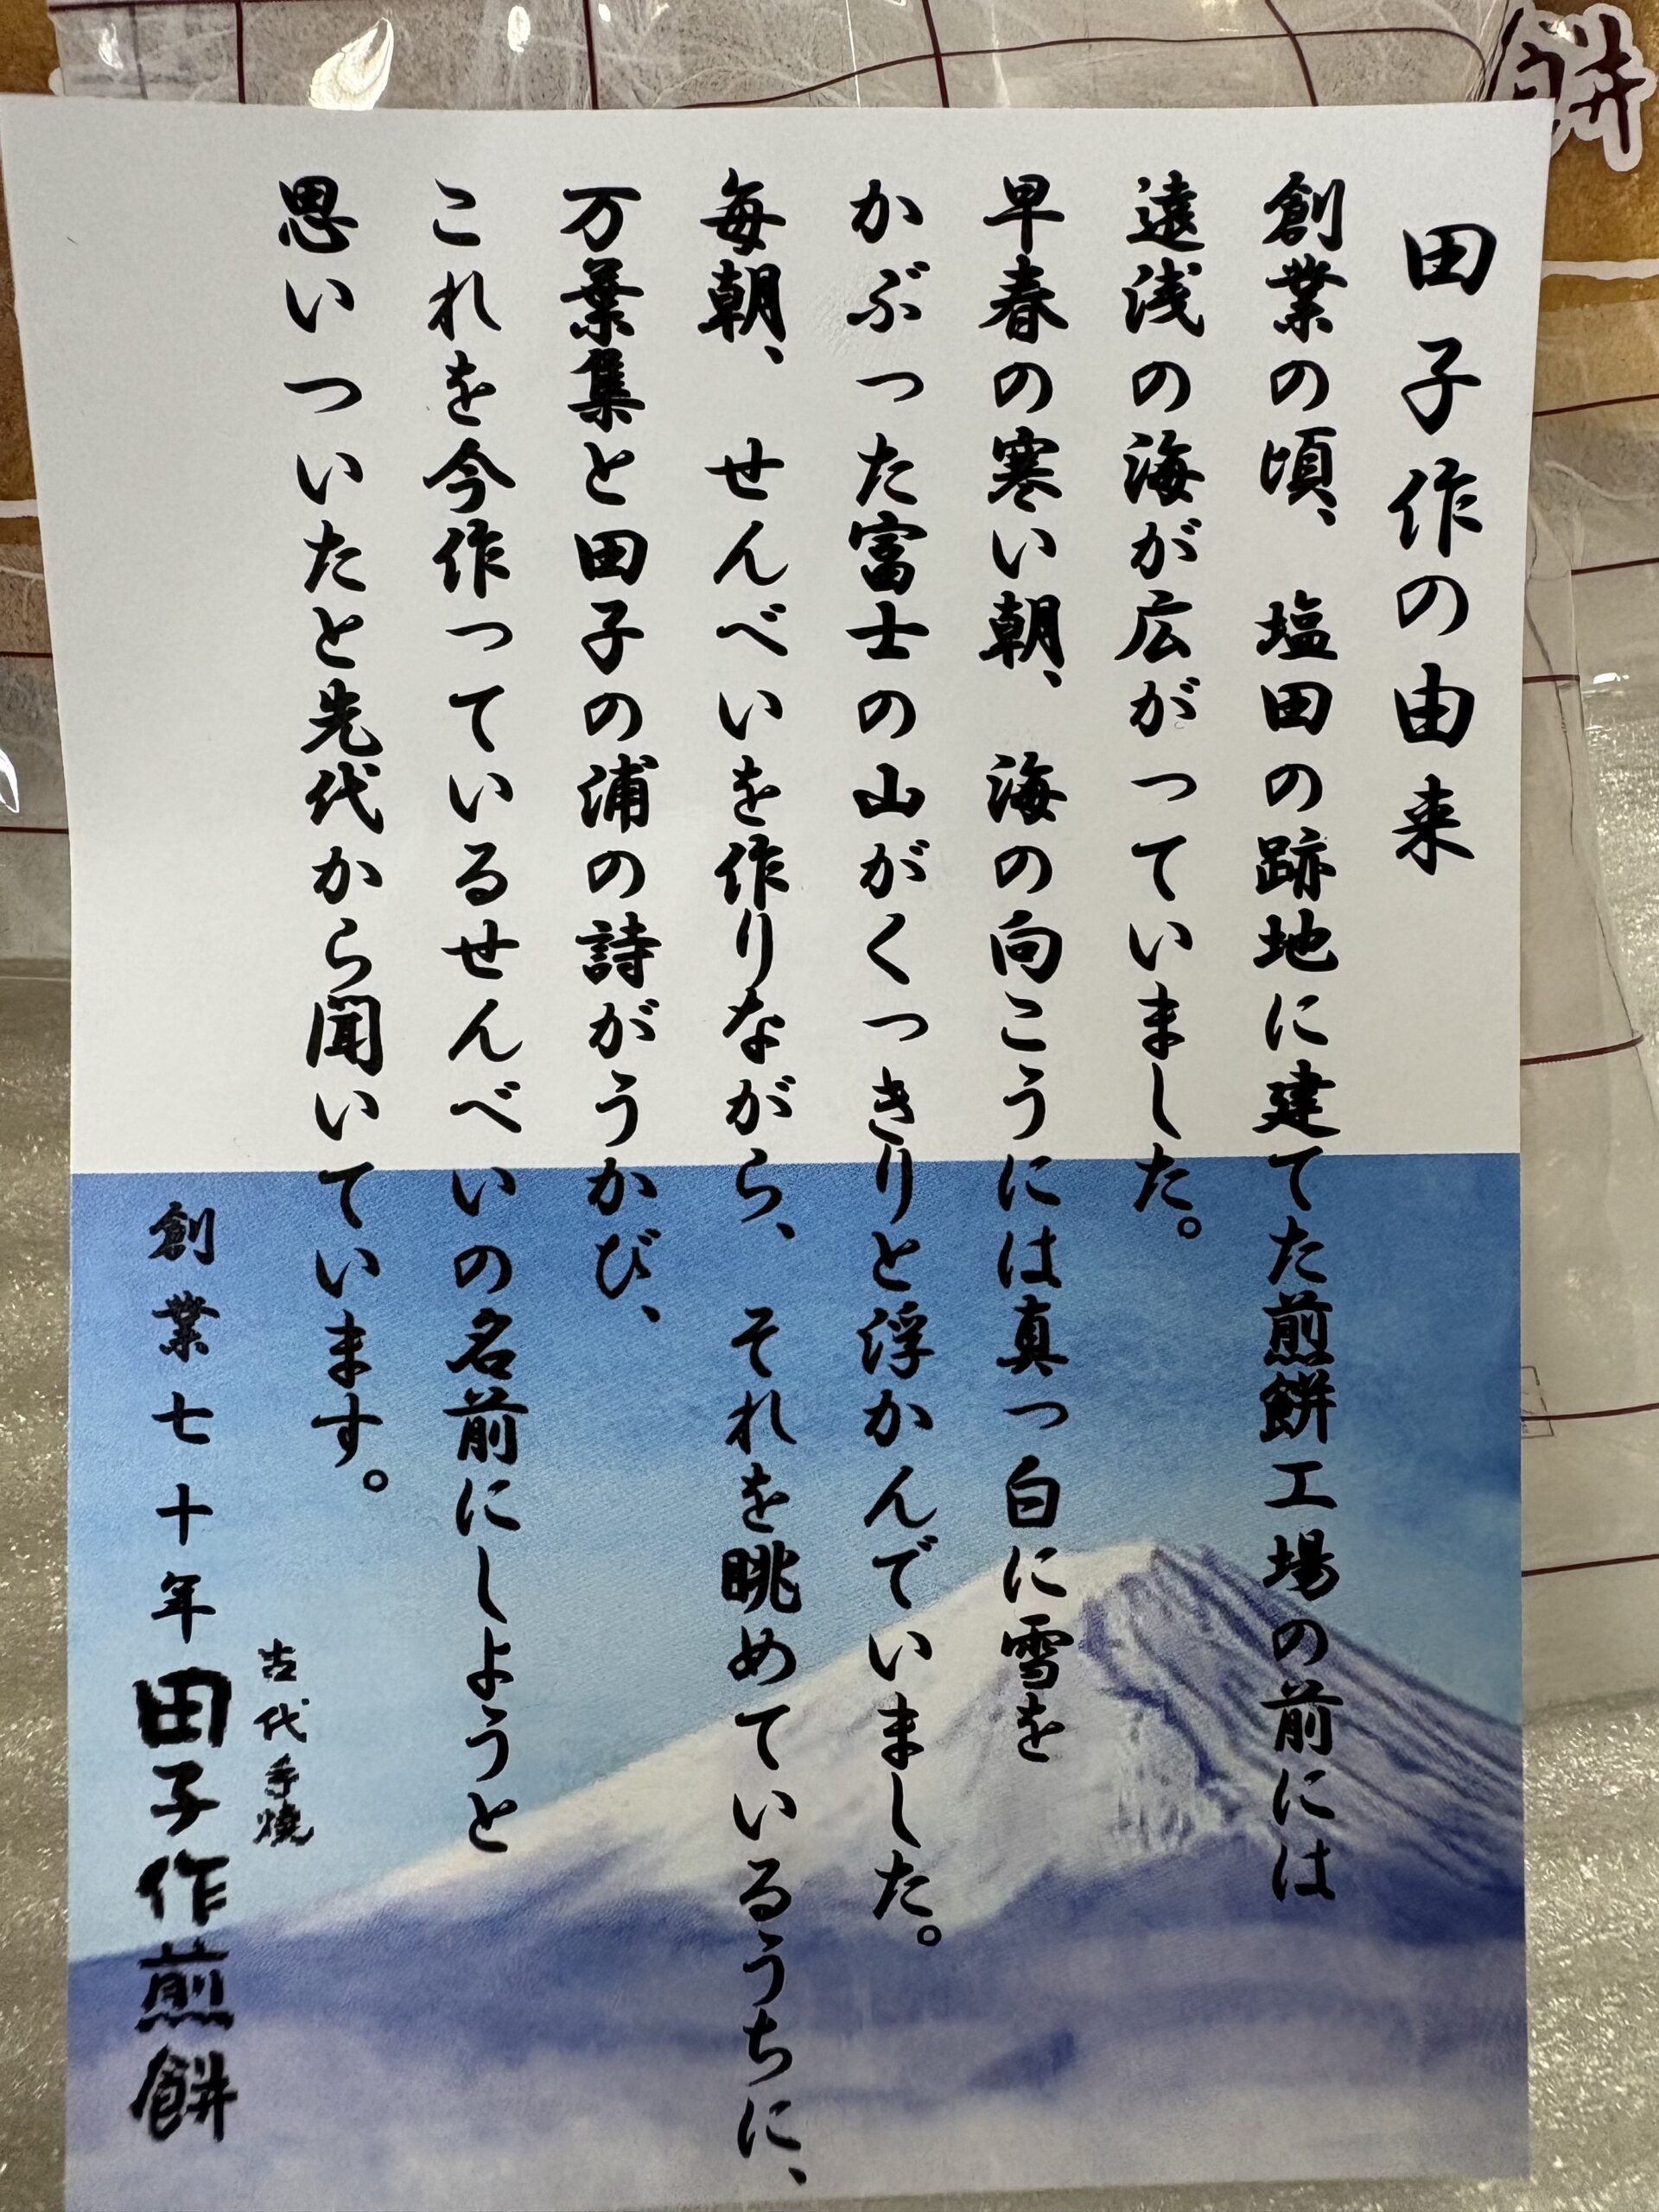 餅
田子作の由来
創業の頃、塩田の跡地に建てた煎餅工場の前には
遠浅の海が広がっていました。
早春の寒い朝、海の向こうには真っ白に雪を
かぶった富士の山がくっきりと浮かんでいました。
毎朝、せんべいを作りながら、それを眺めているうちに、
万葉集と田子の浦の詩がうかび、
これを今作っているせんべいの名前にしようと
思いついたと先代から聞いています。
古代手焼
創業七十年田子作煎餅